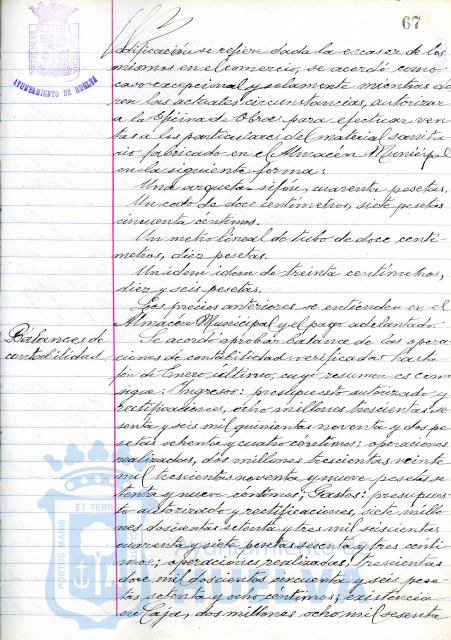 67
AYUNTAMIENTO DE HUELVA
edificación se refiere dada la escasez de los
mismos en el comercio, se acordó como
caso excepcional y solamente mientras du
ren las actuales circunstancias, autorizar
a la Oficina de Obras para efectuar ven
tas a los particulares del material sanita
rio fabricado en el Almacén Municipal
en la siguiente forma:
Una arqueta sifón, cuarenta pesetas.
Un codo de doce centímetros, siete pesetas
cincuenta céntimos.
Un metro lineal de tubo de doce centí-
metros, diez pesetas.
Un idem idem de treinta centímetros,
diez y seis pesetas.
Los precios anteriores se entienden en el
Almacén Municipal y el pago adelantado.
Balances de
contabilidad
Se acordó aprobar balance de las opera
ciones de contabilidad verificadas hasta
fin de Enero último, cuyo resumen es como
sigue: Ingresos: presupuesto autorizado y
rectificaciones, ocho millones trescientas se
senta y seis mil quinientas noventa y dos pe
setas ochenta y cuatro céntimos; operaciones
realizadas, dos millones trescientas veinte
mil trescientas noventa y nueve pesetas se
tenta y nueve céntimos; Gastos: presupues
to autorizado y rectificaciones, siete millo
nes doscientas setenta y tres mil seiscientas
cuarenta y siete pesetas sesenta y tres cénti
mos; operaciones realizadas, trescientas
doce mil doscientas cincuenta y seis pese
tas setenta y ocho céntimos; existencia
en Caja, dos millones ocho mil sesenta
PORTUS MARIS
ET TERR
Ayuntamiento de
HUELVA